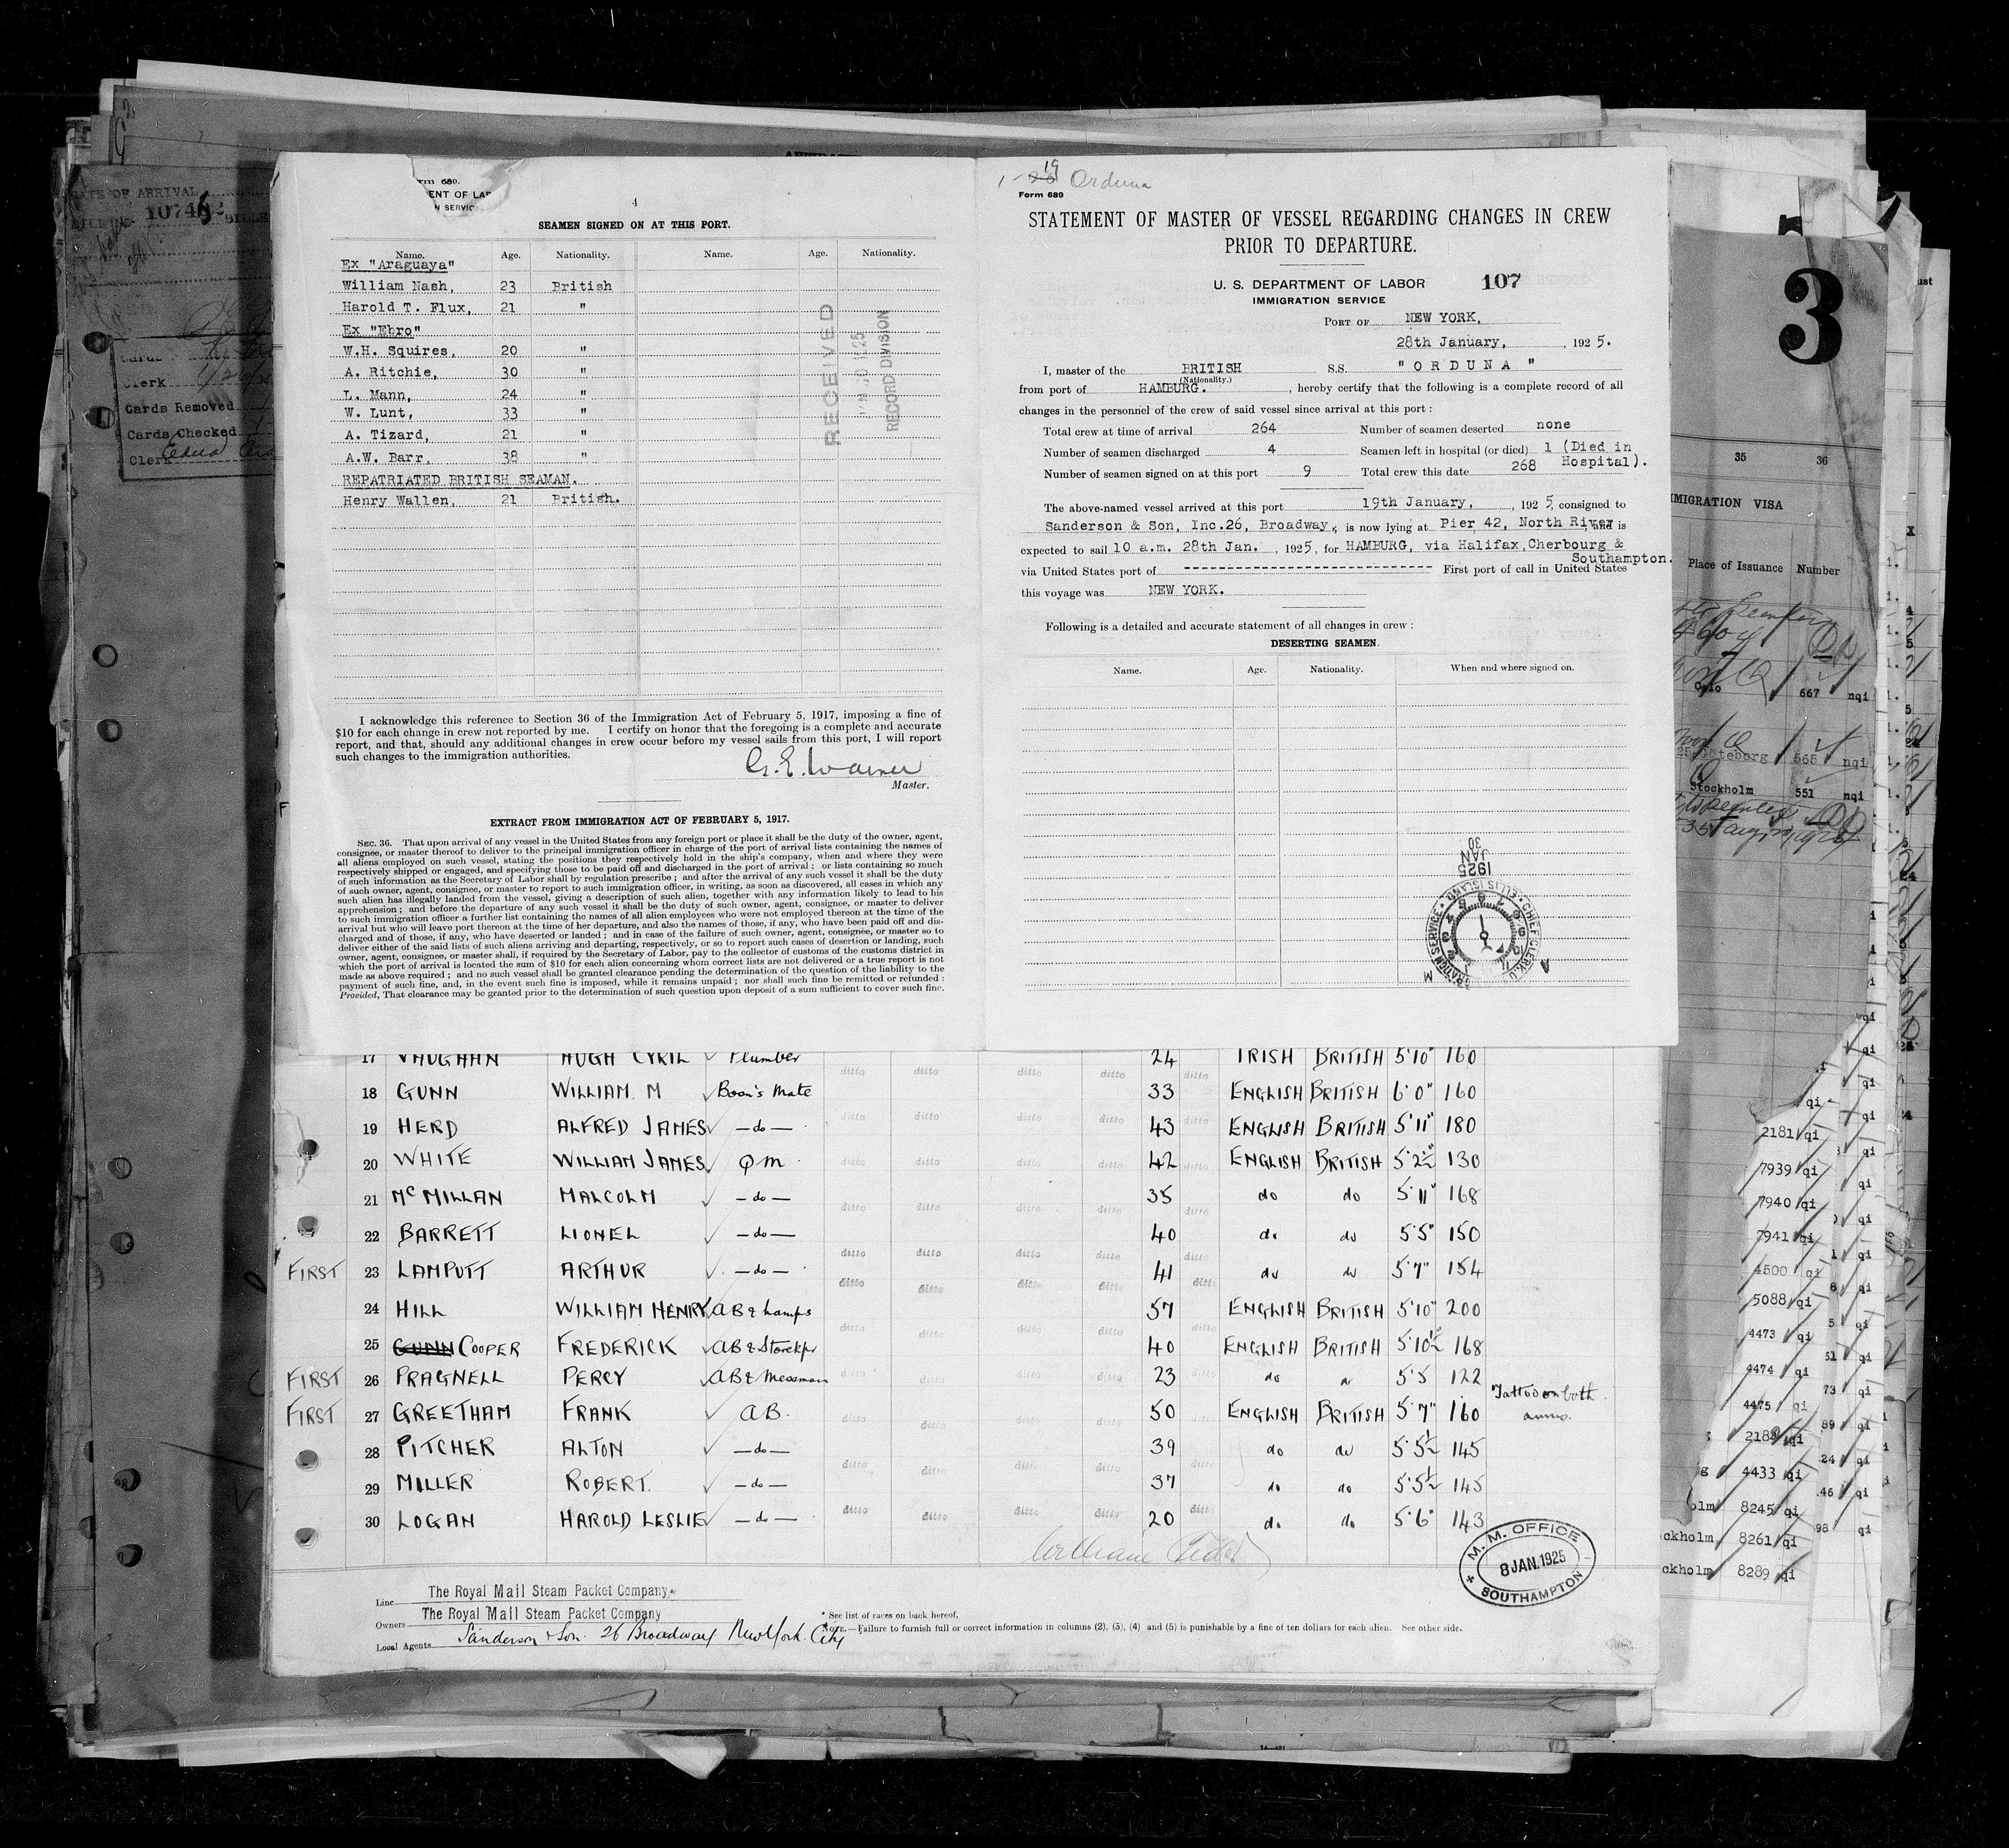 DATE OF ARRIVAL
Cards Removed
Cards Checked
Clerk
Form 689.
4
SEAMEN SIGNED ON AT THIS PORT.
Name. Age. Nationality. Name. Age. Nationality.
Ex "Araguaya"
William Nash, 23 British
Harold T. Flux, 21 "
Ex "Ebro"
W.H. Squires, 20 "
A. Ritchie, 30 "
L. Mann, 24 "
W. Lunt, 33 "
A. Tizard, 21 "
A.W. Barr, 38 "
REPATRIATED BRITISH SEAMAN.
Henry Wallen, 21 British.
RECEIVED
RECORD DIVISION
I acknowledge this reference to Section 36 of the Immigration Act of February 5, 1917, imposing a fine of
$10 for each change in crew not reported by me. I certify on honor that the foregoing is a complete and accurate
report, and that, should any additional changes in crew occur before my vessel sails from this port, I will report
such changes to the immigration authorities.
G. E. Warner
Master.
EXTRACT FROM IMMIGRATION ACT OF FEBRUARY 5, 1917.
SEC. 36. That upon arrival of any vessel in the United States from any foreign port or place it shall be the duty of the owner, agent,
consignee, or master thereof to deliver to the principal immigration officer in charge of the port of arrival lists containing the names of
all aliens employed on such vessel, stating the positions they respectively hold in the ship's company, when and where they were
respectively shipped or engaged, and specifying those to be paid off and discharged in the port of arrival; or lists containing so much
of such information as the Secretary of Labor shall by regulation prescribe; and after the arrival of any such vessel it shall be the duty
of such owner, agent, consignee, or master to report to such immigration officer, in writing, as soon as discovered, all cases in which any
such alien has illegally landed from the vessel, giving a description of such alien, together with any information likely to lead to his
apprehension; and before the departure of any such vessel it shall be the duty of such owner, agent, consignee, or master to deliver
to such immigration officer a further list containing the names of all alien employees who were not employed thereon at the time of the
arrival but who will leave port thereon at the time of her departure, and also the names of those, if any, who have been paid off and dis-
charged and of those, if any, who have deserted or landed; and in case of the failure of such owner, agent, consignee, or master so to
deliver either of the said lists of such aliens arriving and departing, respectively, or so to report such cases of desertion or landing, such
owner, agent, consignee, or master shall, if required by the Secretary of Labor, pay to the collector of customs of the customs district in
which the port of arrival is located the sum of $10 for each alien concerning whom correct lists are not delivered or a true report is not
made as above required; and no such vessel shall be granted clearance pending the determination of the question of the liability to the
payment of such fine, and, in the event such fine is imposed, while it remains unpaid; nor shall such fine be remitted or refunded:
Provided, That clearance may be granted prior to the determination of such question upon deposit of a sum sufficient to cover such fine.
19
Orduna
Form 689
STATEMENT OF MASTER OF VESSEL REGARDING CHANGES IN CREW
PRIOR TO DEPARTURE.
U. S. DEPARTMENT OF LABOR 107
IMMIGRATION SERVICE
PORT OF NEW YORK,
28th January, , 1925.
I, master of the BRITISH S.S. "ORDUNA"
(Nationality.)
from port of HAMBURG. , hereby certify that the following is a complete record of all
changes in the personnel of the crew of said vessel since arrival at this port:
Total crew at time of arrival 264 Number of seamen deserted none
Number of seamen discharged 4 Seamen left in hospital (or died) 1 (Died in
Hospital).
Number of seamen signed on at this port 9 Total crew this date 268
The above-named vessel arrived at this port 19th January, , 1925, consigned to
Sanderson & Son, Inc.26, Broadway, is now lying at Pier 42, North River, and is
expected to sail 10 a.m. 28th Jan. , 1925, for HAMBURG, via Halifax, Cherbourg &
Southampton.
via United States port of ---------- First port of call in United States
this voyage was NEW YORK.
Following is a detailed and accurate statement of all changes in crew:
DESERTING SEAMEN.
Name. Age. Nationality. When and where signed on.
1925
JAN
30
CHIEF CLERK, U. ELLIS ISLAND
3
35 36
IMMIGRATION VISA
Place of Issuance Number
Oslo 667 nqi
Göteborg 565 nqi
Stockholm 551 nqi
17 VAUGHAN HUGH CYRIL Plumber ditto ditto ditto ditto 24 ditto IRISH BRITISH 5'10" 160
18 GUNN WILLIAM. M Bosn's Mate 33 ENGLISH BRITISH 6'0" 160
19 HERD ALFRED JAMES —do— ditto ditto ditto ditto 43 ditto ENGLISH BRITISH 5'11" 180
20 WHITE WILLIAM JAMES QM ditto ditto ditto ditto 42 ditto ENGLISH BRITISH 5'2½" 130
21 McMILLAN MALCOLM —do— ditto ditto ditto ditto 35 ditto do do 5'11" 168
22 BARRETT LIONEL —do— ditto ditto ditto ditto 40 ditto do do 5'5" 150
FIRST 23 LAMPUTT ARTHUR —do— ditto ditto ditto ditto 41 ditto do do 5'7" 154
24 HILL WILLIAM HENRY AB & Lamps 57 ENGLISH BRITISH 5'10" 200
25 GUNN COOPER FREDERICK AB & Storekpr ditto ditto ditto ditto 40 ditto ENGLISH BRITISH 5'10½" 168
FIRST 26 PRAGNELL PERCY AB & Messman ditto ditto ditto ditto 23 ditto do do 5'5 122
FIRST 27 GREETHAM FRANK AB. ditto ditto ditto ditto 50 ditto ENGLISH BRITISH 5'7" 160 Tattoo on both
arms.
28 PITCHER ALTON —do— 39 do do 5'5½ 145
29 MILLER ROBERT. —do— ditto ditto ditto ditto 37 ditto do do 5'5½ 145
30 LOGAN HAROLD LESLIE —do— ditto ditto ditto ditto 20 ditto do do 5'6" 143
M. M. OFFICE
8 JAN. 1925
SOUTHAMPTON
Line The Royal Mail Steam Packet Company.
Owners The Royal Mail Steam Packet Company
Local Agents Sanderson & Son. 26 Broadway New York. City
* See list of races on back hereof.
NOTE.—Failure to furnish full or correct information in columns (2), (3), (4) and (5) is punishable by a fine of ten dollars for each alien. See other side.
2181 qi
7939 qi
7940 qi
7941 qi
4500 qi
5088 qi
4473 qi
4474 qi
4475 qi
4433 qi
8245 qi
8261 qi
8289 qi